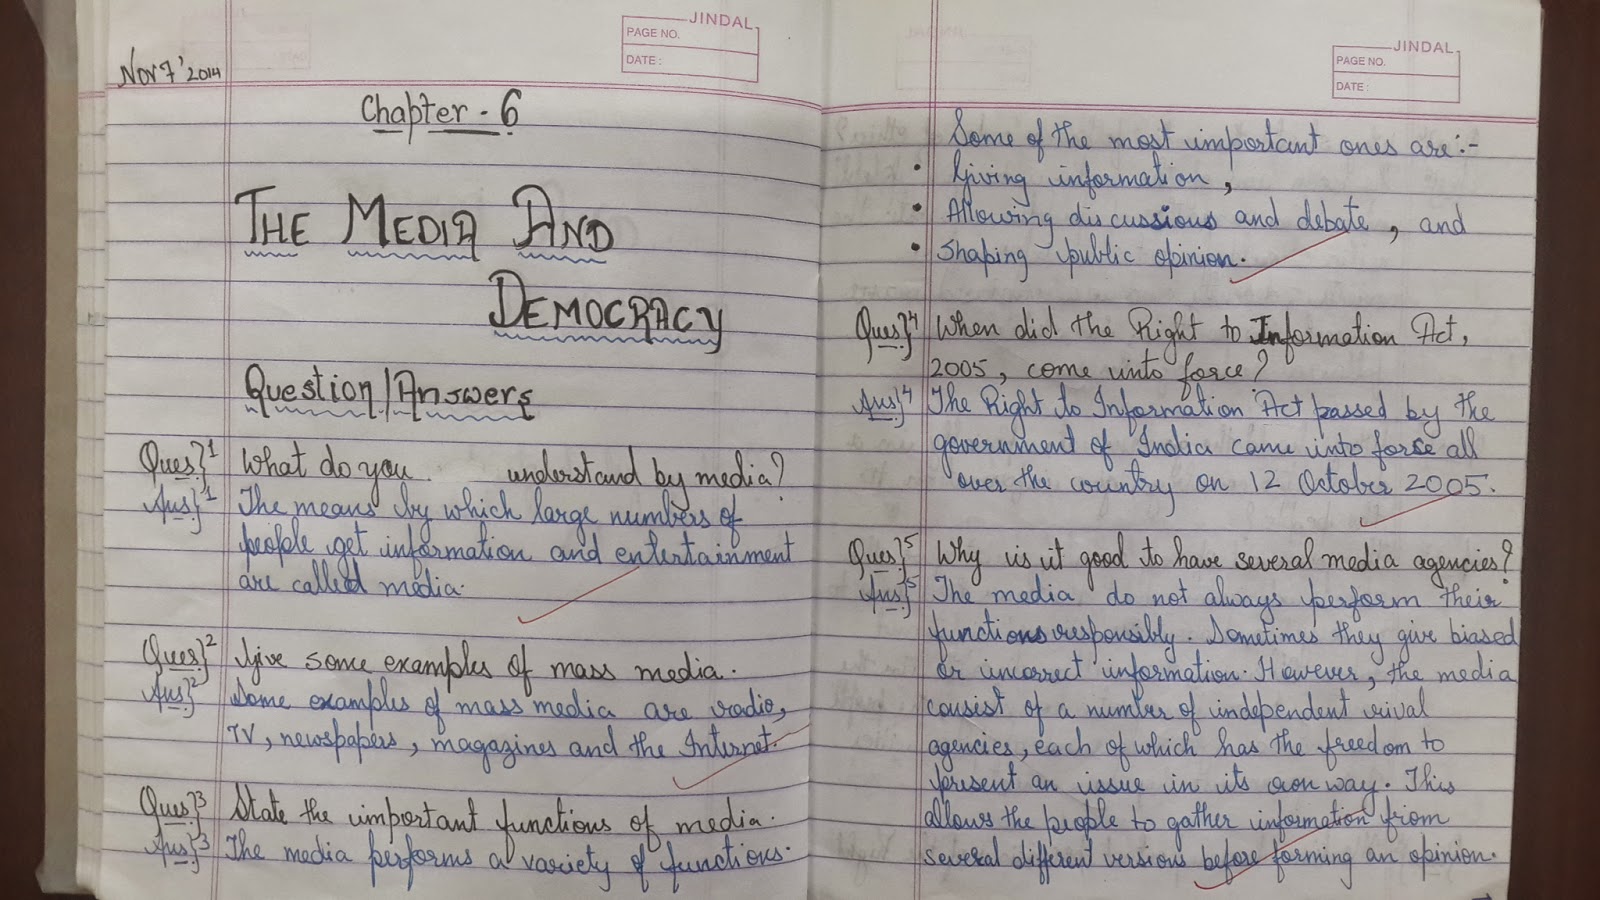 JINDAL
PAGE NO.
DATE :
Nov 7 '2014
Chapter - 6
THE MEDIA AND
DEMOCRACY
Question/Answers
Ques}1 What do you understand by media?
Ans}1 The means by which large numbers of
people get information and entertainment
are called media.
Ques}2 Give some examples of mass media.
Ans}2 Some examples of mass media are radio,
TV, newspapers, magazines and the Internet.
Ques}3 State the important functions of media.
Ans}3 The media performs a variety of functions.
JINDAL
PAGE NO.
DATE :
Some of the most important ones are:-
• Giving information,
• Allowing discussions and debate, and
• Shaping public opinion.
Ques}4 When did the Right to Information Act,
2005, come into force?
Ans}4 The Right to Information Act passed by the
government of India came into force all
over the country on 12 October 2005.
Ques}5 Why is it good to have several media agencies?
Ans}5 The media do not always perform their
functions responsibly. Sometimes they give biased
or incorrect information. However, the media
consist of a number of independent rival
agencies, each of which has the freedom to
present an issue in its own way. This
allows the people to gather information from
several different versions before forming an opinion.